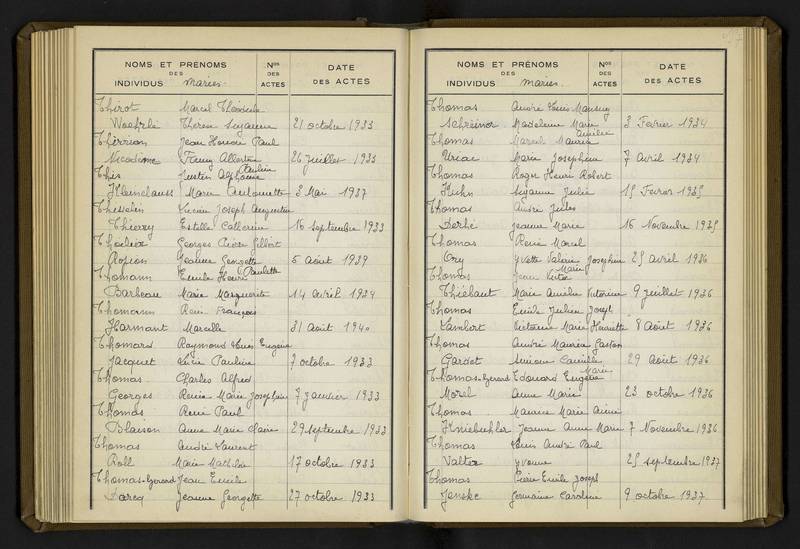 NOMS ET PRÉNOMS
DES
INDIVIDUS mariés.
Nos
DES
ACTES
DATE
DES ACTES
Thirot Marcel Théodule
Woehrlé Thérèse Suzanne 21 octobre 1933
Thirrion Jean Honoré Paul
Nicodème Fanny Albertine 26 juillet 1935
Pauline
This Justin Alphonse
Kleinclauss Marie Antoinette 3 Mai 1937
Thisselin Lucien Joseph Augustin
Thierry Estelle Catherine 16 septembre 1933
Georges Pierre Gilbert
Jeanne Georgette 5 août 1939
Paulette
Thomann Emile Henri
Barbeau Marie Marguerite 14 avril 1934
Thomann René François
Harmant Marcelle 31 Août 1940
Thomard Raymond Louis Eugène
Jacquet Lucie Pauline 7 octobre 1933
Thomas Charles Alfred
Georges Renée Marie Joséphine 7 janvier 1933
Thomas René Paul
Blaison Anne Marie Claire 29 septembre 1933
Thomas André Laurent
Roll Marie Mathilde 17 octobre 1933
Thomas-Gérard Jean Emile
Darcq Jeanne Georgette 27 octobre 1933
NOMS ET PRÉNOMS
DES
INDIVIDUS mariés.
Nos
DES
ACTES
DATE
DES ACTES
Thomas André Louis Mansuy
Schreiner Madeleine Marie 3 Fevrier 1934
Emilie
Thomas Marcel Maurice
Uriac Marie Joséphine 7 Avril 1934
Thomas Roger Henri Robert
Huhn Suzanne Julie 15 Fevrier 1935
Thomas André Jules
Derhé Jeanne Marie 16 Novembre 1935
Thomas René Marcel
Ory Yvette Valérie Joséphine 25 avril 1936
Marie
Thomas Jean Victor
Thiébaut Marie Amélie Victorine 9 juillet 1936
Thomas Emile Julien Joseph
Lambert Victorine Marie Henriette 8 Août 1936
Thomas André Maurice Gaston
Gardet Simone Camille 29 Août 1936
Marie
Thomas-Gérard Edouard Eugène
Morel Anne Marie 23 octobre 1936
Thomas Maurice Marie Aimé
Kniebuehler Jeanne Anne Marie 7 Novembre 1936
Thomas Louis André Paul
Valter Yvonne 25 septembre 1937
Thomas Pierre Emile Joseph
Jenské Germaine Caroline 9 octobre 1937